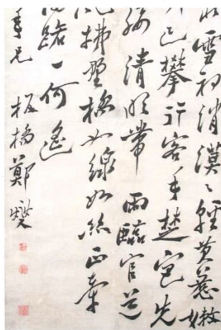 雪初消漠漠輕黃惹嫩
已攀行客手楚宮先
腰清明帶雨臨官道
拂野橋如線如絲正牽
歸路一何遙
年兄 板橋鄭燮